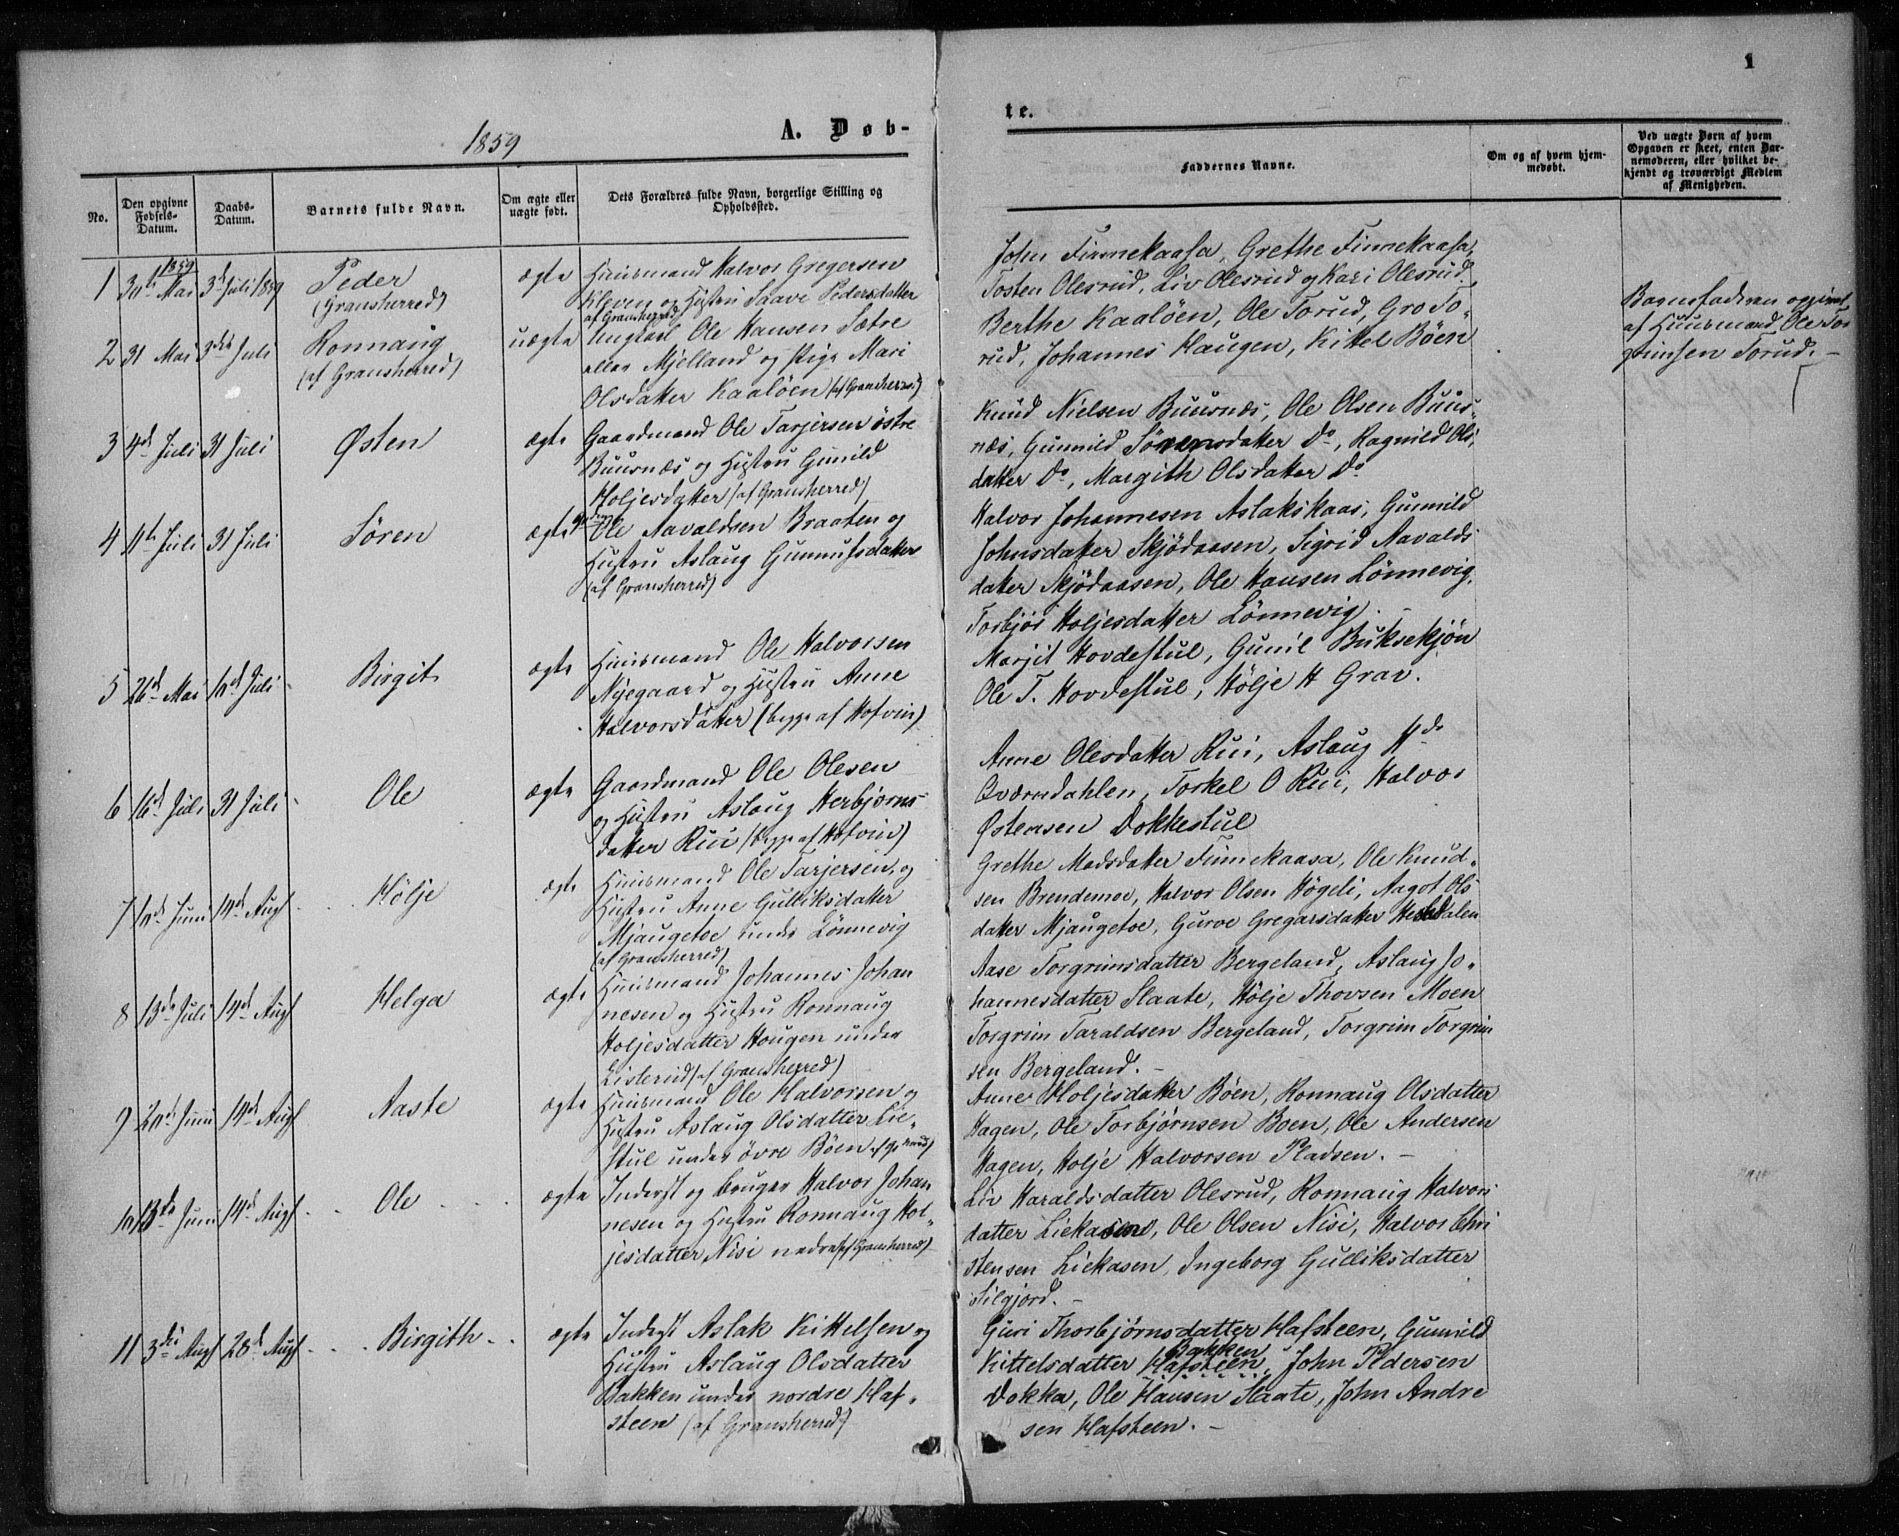 1
1859
A. Døb-
te.
No.
Den opgivne Fødsels-Datum.
Daabs-Datum.
Barnets fulde Navn.
Om ægte eller uægte født.
Dets Forældres fulde Navn, borgerlige Stilling og Opholdssted.
Faddernes Navne.
Om og af hvem hjemmedøbt.
Ved uægte Børn af hvem Opgaven er skeet, enten Barnemoderen, eller hvilket bekjendt og troværdigt Medlem af Menigheden.
1
1859 Mai
3d Juli 1859
Peder
(Gransherred)
ægte
Huusmand Halvor Gregersen
Kleven og Hustru Saave Pedersdatter
af Gransherred)
John Finnekaasa, Grethe Finnekaasa,
Tosten Olesrud, Liv Olesrud og Kari Olesrud.
2
31 Mai
3die Juli
Ronnaug
(af Gransherred)
uægte
Ungkarl Ole Hansen Sætre
eller Mjelland og Pige Mari
Olsdatter Kaaløen (af Gransherred)
Berthe Kaaløen, Ole Torud, Gro To-
rud, Johannes Haugen, Kittel Bøen
Barnefaderen opgivet
af Huusmand Ole Tor
grimsen Torud. -
3
4de Juli
31 Juli
Østen
ægte
Gaardmand Ole Tarjersen østre
Buusnæs og Hustru Gunild
Holjesdatter (af Gransherred)
Knud Nielsen Buusnæs, Ole Olsen Buus-
næs, Gunnild Sørensdatter Do, Ragnild Ols-
datter Do, Margith Olsdatter Do
4
4de Juli
31 Juli
Søren
ægte
Ole Aavaldsen Braaten og
Hustru Aslaug Gunnulfsdatter
(af Gransherred)
Halvor Johannesen Aslakskaas, Gunnild
Johnsdatter Skjødaasen, Sigrid Aavalds
datter Skjødaasen, Ole Hansen Lønnevig,
Torbjør Holjesdatter Lønnevig. -
5
26de Mai
10de Juli
Birgit
ægte
Huusmand Ole Halvorsen
Nyegaard og Hustru Anne
Halvorsdatter (begge af Hofvin)
Marjit Hovdestul, Gunil Buksekjøn
Ole T. Hovdestul, Hølje H Grav.
6
16de Juli
31 Juli
Ole
ægte
Gaardmand Ole Olesen
og Hustru Aslaug Herbjorns-
datter Rui (begge af Hofvin)
Anne Olesdatter Rui, Aslaug Hdr
Qværndahlen, Torkel O Rui, Halvor
Østensen Dokkestul
7
10de Juni
14de Augst
Hølje
ægte
Huusmand Ole Tarjersen, og
Hustru Anne Gulliksdatter
Mjaugetoe under Lønnevig
(af Gransherred)
Grethe Madsdatter Finnekaasa, Ole Knud-
sen Brendemoe, Halvor Olsen Høgeli, Aagot Ols
datter Mjaugetoe, Guroe Gregarsdatter
8
13de Juli
14de Augst
Helga
ægte
Huusmand Johannes Johan
nesen og Hustru Ronnaug
Holjesdatter Hougen under
Listerud (af Gransherred)
Aase Torgrimsdatter Bergeland, Aslaug Jo-
hannesdatter Slaate, Hølje Thovsen Moen
Torgrim Taraldsen Bergeland, Torgrim Torgrim
sen Bergeland. -
9
20de Juni
14de Augst
Aaste
ægte
Huusmand Ole Halvorsen og
Hustru Aslaug Olsdatter Lie-
stul under øvre Bøen
Anne Holjesdatter Bøen, Ronnaug Olsdatter
Hagen, Ole Torbjørnsen Boen, Ole Andersen
Hagen, Holje Halvorsen Pladsen. -
10
13de Juni
14de Augst
Ole
ægte
Inderst og bruger Halvor Johan
nesen og Hustru Ronnaug Hol-
jesdatter Nisi nedre (af Gransherred)
Liv Haraldsdatter Olesrud, Ronnaug Halvors
datter Liekasene, Ole Olsen Nisi, Halvor Chri
stensen Liekasen, Ingeborg Gulliksdatter
Silgjord. -
11
3die Augst
28de Augst
Birgith
ægte
Inderst Aslak Kittelsen og
Hustru Aslaug Olsdatter
Bakken under nordre Haf-
steen (af Gransherred)
Guri Thorbjørnsdatter Hafsteen, Gunnild
Bakken
Kittelsdatter Hafsteen, John Pedersen
Dokka, Ole Hansen Slaate, John Andre
sen Hafsteen. -